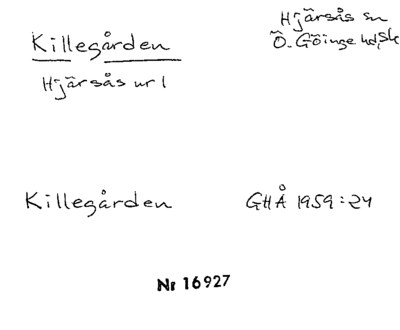 Hjärsås sn
Ö. Göinge hd, Sk
Killegården
Hjärsås nr 1
Killegården GHÅ 1959:24
Nr 16927